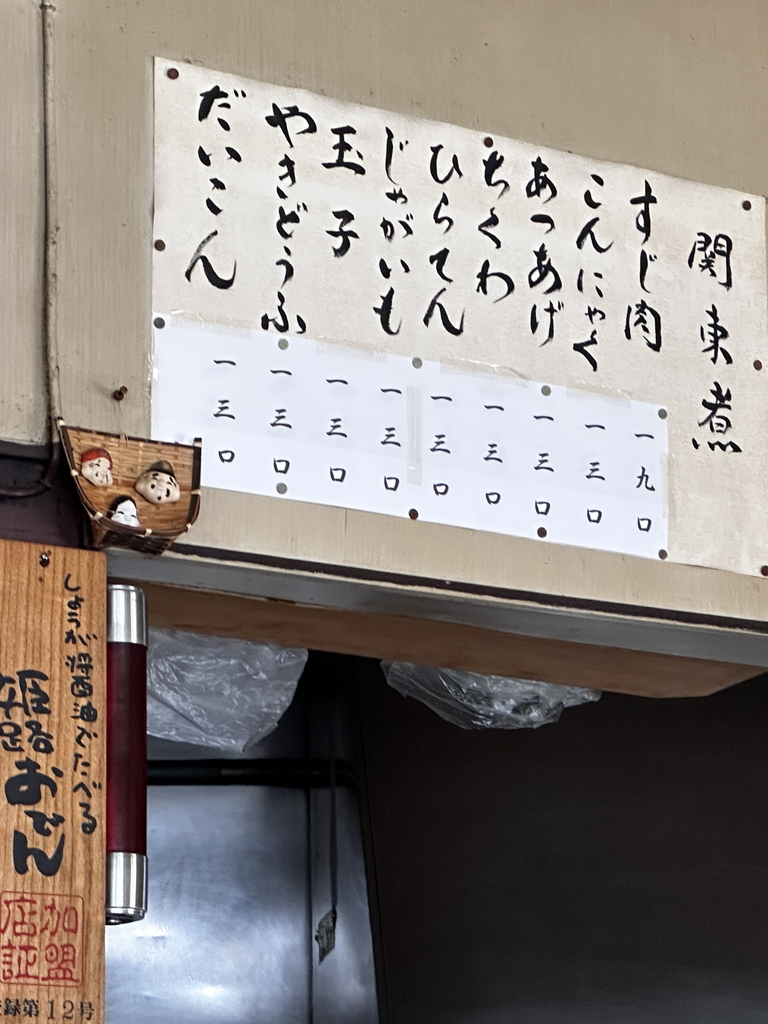 関東煮
すじ肉
こんにゃく
あつあげ
ちくわ
ひらてん
じゃがいも
玉子
やきどうふ
だいこん
一九〇
一三〇
一三〇
一三〇
一三〇
一三〇
一三〇
一三〇
一三〇
しょうが醤油でたべる
姫路おでん
加盟
店証
登録第12号